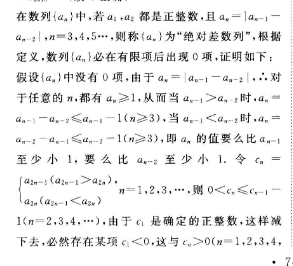 在数列{aₙ}中,若 a₁,a₂ 都是正整数,且 aₙ=|aₙ₋₁-
aₙ₋₂|,n=3,4,5…,则称{aₙ}为“绝对差数列”,根据
定义,数列{aₙ}必在有限项后出现0项,证明如下:
假设{aₙ}中没有0项,由于 aₙ=|aₙ₋₁-aₙ₋₂|,∴对
于任意的 n,都有 aₙ≥1,从而当 aₙ₋₁>aₙ₋₂ 时,aₙ=
aₙ₋₁-aₙ₋₂≤aₙ₋₁-1(n≥3),当 aₙ₋₁<aₙ₋₂ 时,aₙ=
aₙ₋₂-aₙ₋₁≤aₙ₋₂-1(n≥3),即 aₙ 的值要么比 aₙ₋₁
至少小1,要么比 aₙ₋₂ 至少小1.令 cₙ=
{a₂ₙ₋₁(a₂ₙ₋₁>a₂ₙ),
a₂ₙ(a₂ₙ₋₁<a₂ₙ)
n=1,2,3,…,则 0<cₙ≤cₙ₋₁-
1(n=2,3,4,…),由于 c₁ 是确定的正整数,这样减
下去,必然存在某项 c₁<0,这与 cₙ>0(n=1,2,3,4,
• 7